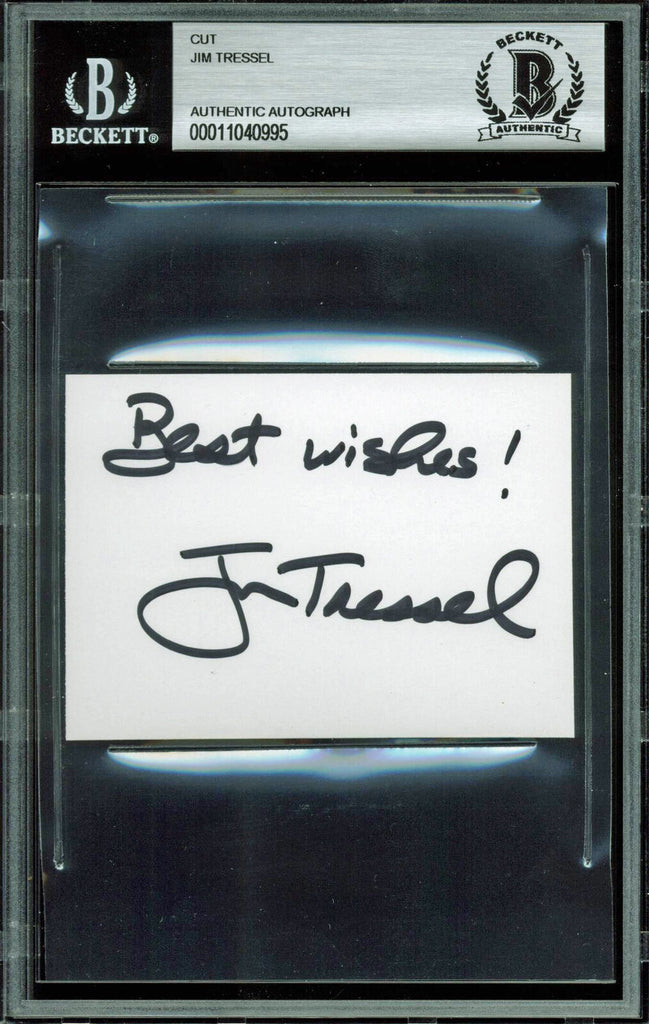 CUT
JIM TRESSEL
AUTHENTIC AUTOGRAPH
00011040995
B
BECKETT®
BECKETT
B
AUTHENTIC
Best wishes!
Jim Tressel